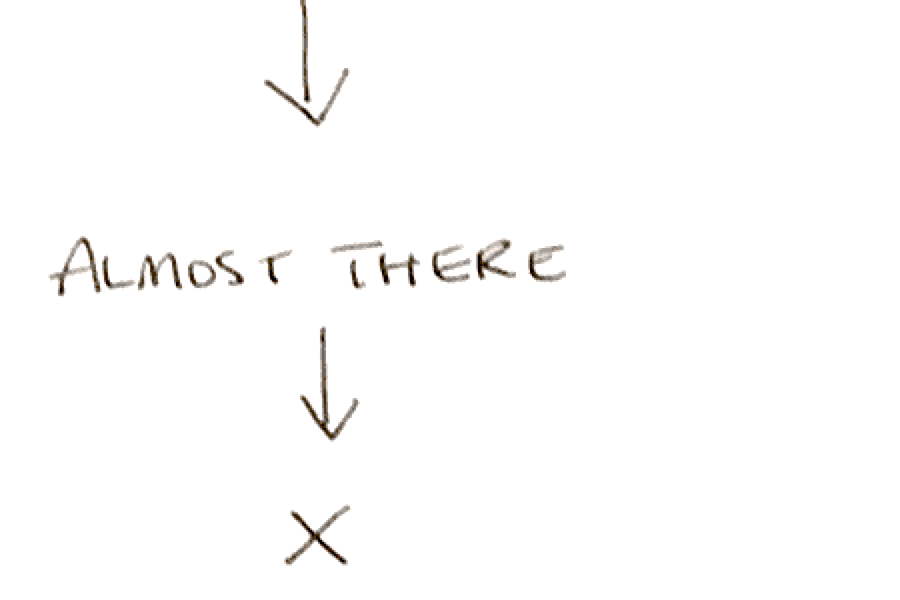 ALMOST THERE
X